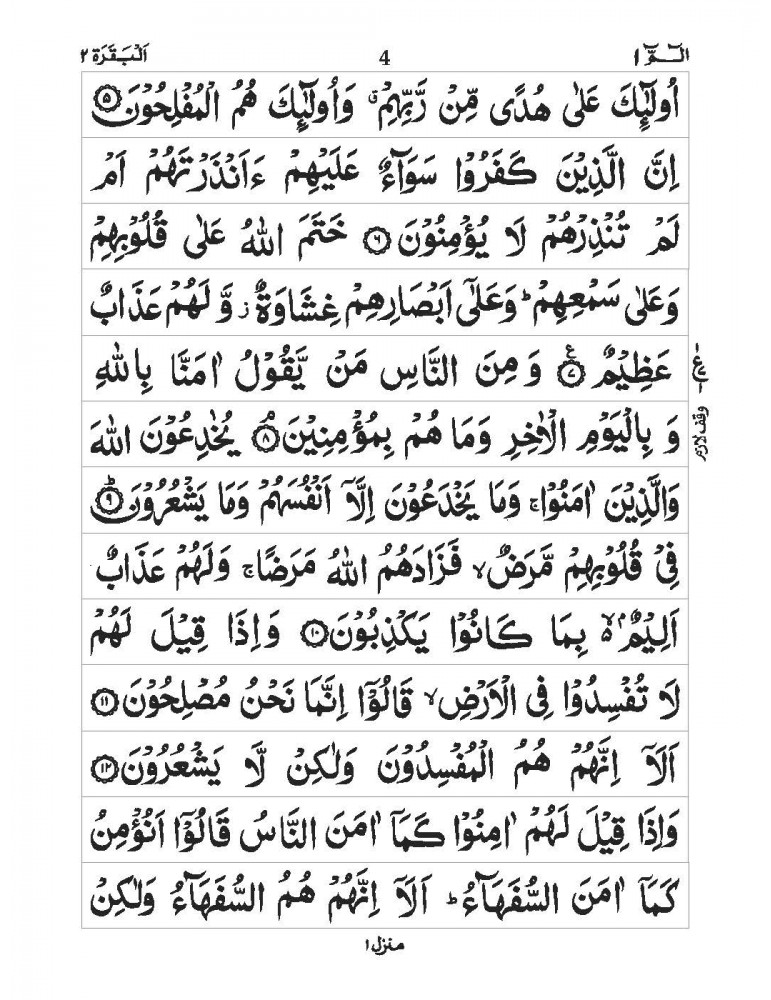 الٓمّٓ ١ 4 اَلْبَقَرَة ٢
اُولٰٓئِكَ عَلٰى هُدًى مِّنْ رَّبِّهِمْ ۗ وَاُولٰٓئِكَ هُمُ الْمُفْلِحُوْنَ ۝٥
اِنَّ الَّذِيْنَ كَفَرُوْا سَوَآءٌ عَلَيْهِمْ ءَاَنْذَرْتَهُمْ اَمْ
لَمْ تُنْذِرْهُمْ لَا يُؤْمِنُوْنَ ۝٦ خَتَمَ اللهُ عَلٰى قُلُوْبِهِمْ
وَعَلٰى سَمْعِهِمْ ؕ وَعَلٰٓى اَبْصَارِهِمْ غِشَاوَةٌ ز وَّ لَهُمْ عَذَابٌ
عَظِيْمٌ ۝٧ ع وَ مِنَ النَّاسِ مَنْ يَّقُوْلُ اٰمَنَّا بِاللهِ
وَ بِالْيَوْمِ الْاٰخِرِ وَمَا هُمْ بِمُؤْمِنِيْنَ ۝٨ يُخٰدِعُوْنَ اللهَ
وَالَّذِيْنَ اٰمَنُوْا ۚ وَمَا يَخْدَعُوْنَ اِلَّآ اَنْفُسَهُمْ وَمَا يَشْعُرُوْنَ ۝٩ؕ
فِيْ قُلُوْبِهِمْ مَّرَضٌ ۙ فَزَادَهُمُ اللهُ مَرَضًا ۚ وَلَهُمْ عَذَابٌ
اَلِيْمٌ ۢ ۙ۬ بِمَا كَانُوْا يَكْذِبُوْنَ ۝١٠ وَاِذَا قِيْلَ لَهُمْ
لَا تُفْسِدُوْا فِى الْاَرْضِ ۙ قَالُوْٓا اِنَّمَا نَحْنُ مُصْلِحُوْنَ ۝١١
اَلَآ اِنَّهُمْ هُمُ الْمُفْسِدُوْنَ وَلٰكِنْ لَّا يَشْعُرُوْنَ ۝١٢
وَاِذَا قِيْلَ لَهُمْ اٰمِنُوْا كَمَآ اٰمَنَ النَّاسُ قَالُوْٓا اَنُؤْمِنُ
كَمَآ اٰمَنَ السُّفَهَآءُ ؕ اَلَآ اِنَّهُمْ هُمُ السُّفَهَآءُ وَلٰكِنْ
وقف لازم
منزل ١